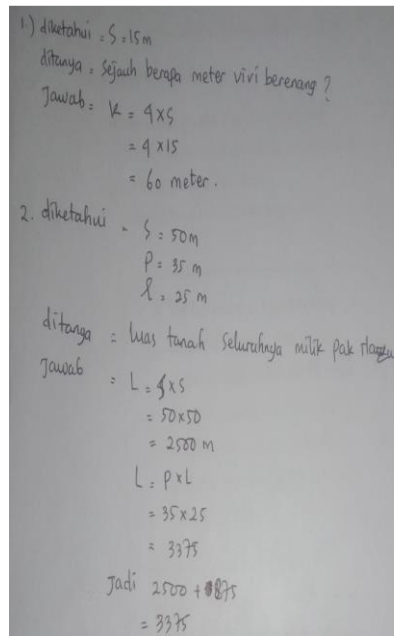 1.) diketahui = S = 15 m
ditanya = sejauh berapa meter vivi berenang ?
Jawab = K = 4 x S
= 4 x 15
= 60 meter.
2. diketahui = S = 50 m
P = 35 m
l = 25 m
ditanya = luas tanah seluruhnya milik pak
Jawab = L = S x S
= 50 x 50
= 2500 m
L = P x L
= 35 x 25
= 3375
Jadi 2500 + 875
= 3375